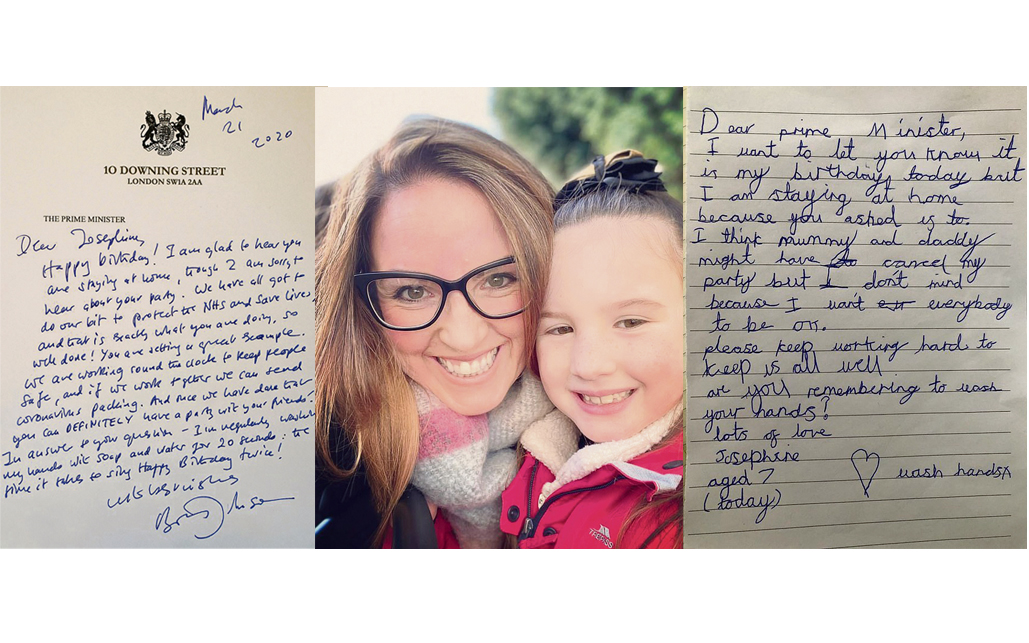 March
21
2020
10 DOWNING STREET
LONDON SW1A 2AA
THE PRIME MINISTER
Dear Josephine,
Happy birthday! I am glad to hear you
are staying at home, though I am sorry to
hear about your party. We have all got to
do our bit to protect the NHS and save lives,
and that is exactly what you are doing, so
well done! You are setting a great example.
We are working round the clock to keep people
safe, and if we work together we can send
coronavirus packing. And once we have done that
you can DEFINITELY have a party with your friends!
In answer to your question - I'm regularly washing
my hands with soap and water for 20 seconds: the
time it takes to sing Happy Birthday twice!
with best wishes
Boris Johnson
TRESPASS
Dear prime Minister,
I want to let you know it
is my birthday today but
I am staying at home
because you asked us to.
I think mummy and daddy
might have to cancel my
party but I dont mind
because I want everybody
to be ok.
please keep working hard to
keep us all well
are you remembering to wash
your hands?
lots of love
Josephine
aged 7
wash handsx
(today)